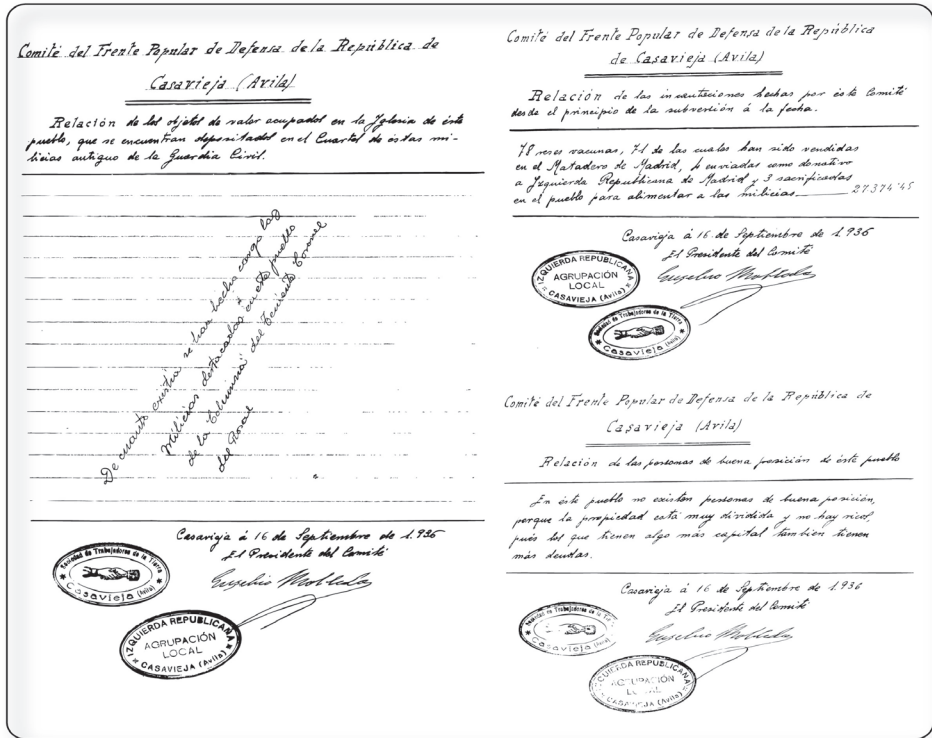 Comité del Frente Popular de Defensa de la República de
Casavieja (Avila)
Relación de los objetos de valor ocupados en la Iglesia de éste
pueblo, que se encuentran depositados en el Cuartel de éstas mi-
licias antiguo de la Guardia Civil.
De cuanto existía se han hecho cargo las
Milicias destacadas en este pueblo
de la "Columna" del Teniente Coronel
del Rosal
Casavieja á 16 de Septiembre de 1.936
El Presidente del Comité
Sociedad de Trabajadores de la Tierra
Casavieja (Avila)
IZQUIERDA REPUBLICANA
AGRUPACIÓN
LOCAL
CASAVIEJA (Avila)
Comité del Frente Popular de Defensa de la República
de Casavieja (Avila)
Relación de las incautaciones hechas por éste Comité
desde el principio de la subversión á la fecha.
78 reses vacunas, 71 de las cuales han sido vendidas
en el Matadero de Madrid, 4 enviadas como donativo
a Izquierda Republicana de Madrid y 3 sacrificadas
en el pueblo para alimentar a las milicias 27.374'45
Casavieja á 16 de Septiembre de 1.936
El Presidente del Comité
IZQUIERDA REPUBLICANA
AGRUPACIÓN
LOCAL
CASAVIEJA (Avila)
Sociedad de Trabajadores de la Tierra
Casavieja (Avila)
Comité del Frente Popular de Defensa de la República de
Casavieja (Avila)
Relación de las personas de buena posición de éste pueblo
En éste pueblo no existen personas de buena posición,
porque la propiedad está muy dividida y no hay ricos,
pués los que tienen algo más capital tambien tienen
más deudas.
Casavieja á 16 de Septiembre de 1.936
El Presidente del Comité
Sociedad de Trabajadores de la Tierra
Casavieja (Avila)
IZQUIERDA REPUBLICANA
AGRUPACIÓN
LOCAL
CASAVIEJA (Avila)